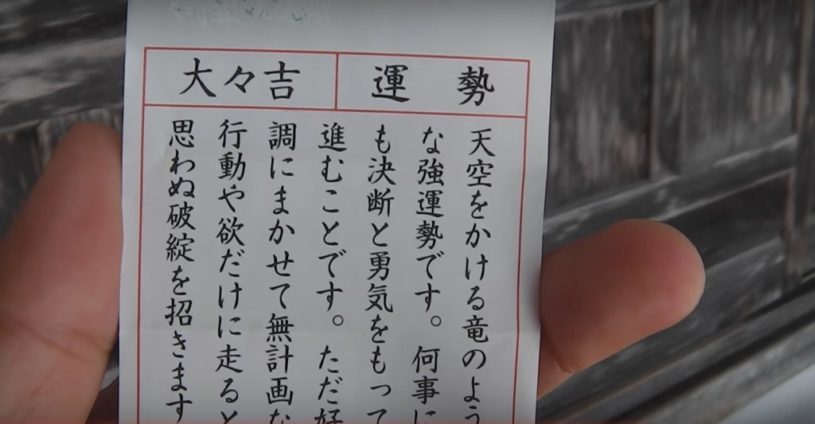 運勢
大々吉
天空をかける竜のよう
な強運勢です。何事に
も決断と勇気をもって
進むことです。ただ好
調にまかせて無計画な
行動や欲だけに走ると
思わぬ破綻を招きます